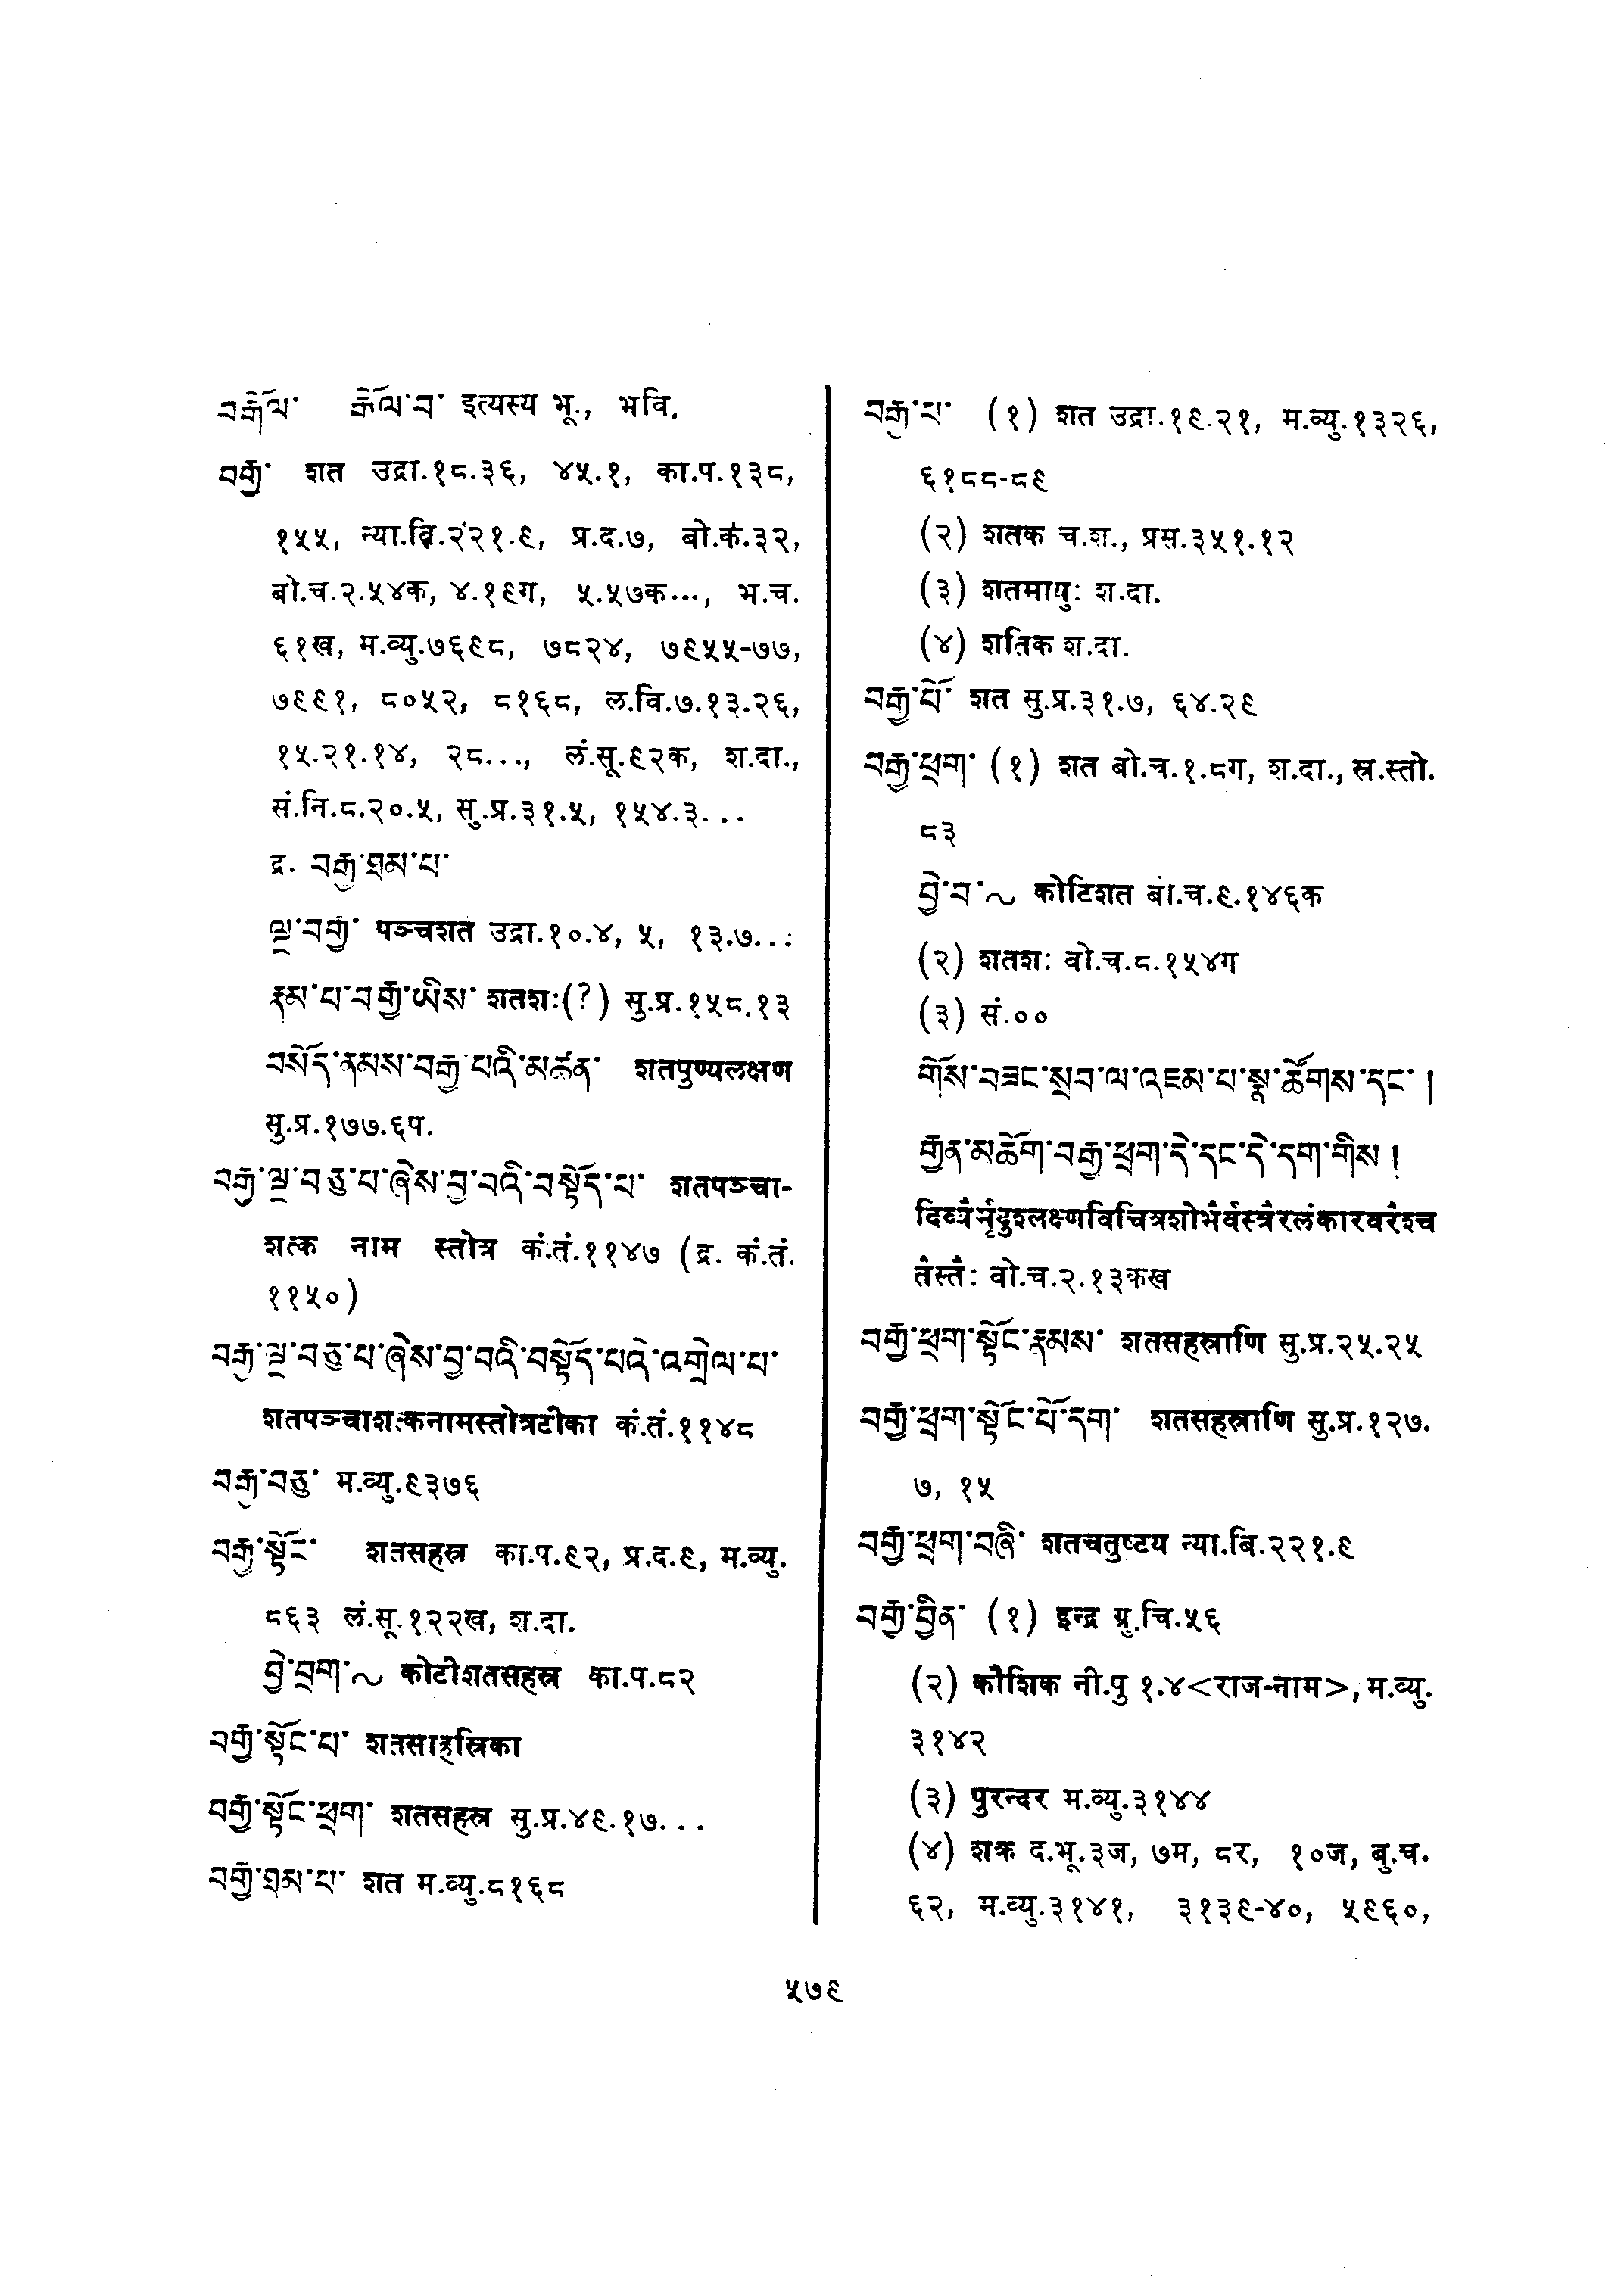 བརྒོལ་ རྒོལ་བ་ इत्यस्य भू., भवि.
བརྒྱ་ शत उद्रा.१८.३६, ४५.१, का.प.१३८,
१५५, न्या.बि.२२१.९, प्र.द.७, बो.क.३२,
बो.च.२.५४क, ४.१९ग, ५.५७क..., भ.च.
६१ख, म.व्यु.७६९८, ७८२४, ७९५५-७७,
७९९१, ८०५२, ८१६८, ल.वि.७.१३.२६,
१५.२१.१४, २८..., लं.सू.९२क, श.दा.,
सं.नि.८.२०.५, सु.प्र.३१.५, १५४.३...
द्र. བརྒྱ་ཐམ་པ་
ལྔ་བརྒྱ་ पञ्चशत उद्रा.१०.४, ५, १३.७...
རྣམ་པ་བརྒྱ་ཡིས་ शतशः(?) सु.प्र.१५८.१३
བསོད་ནམས་བརྒྱ་པའི་མཚན་ शतपुण्यलक्षण
सु.प्र.१७७.६प.
བརྒྱ་ལྔ་བཅུ་པ་ཞེས་བྱ་བའི་བསྟོད་པ་ शतपञ्चा-
शत्क नाम स्तोत्र कं.तं.११४७ (द्र. कं.तं.
११५०)
བརྒྱ་ལྔ་བཅུ་པ་ཞེས་བྱ་བའི་བསྟོད་པའེ་འགྲེལ་པ་
शतपञ्चाशत्कनामस्तोत्रटीका कं.तं.११४८
བརྒྱ་བཅུ་ म.व्यु.९३७६
བརྒྱ་སྟོང་ शतसहस्र का.प.९२, प्र.द.९, म.व्यु.
८६३ लं.सू.१२२ख, श.दा.
བྱེ་བྲག་~ कोटीशतसहस्र का.प.८२
བརྒྱ་སྟོང་པ་ शतसाहस्रिका
བརྒྱ་སྟོང་ཕྲག་ शतसहस्र सु.प्र.४९.१७...
བརྒྱ་ཐམ་པ་ शत म.व्यु.८१६८
བརྒྱ་པ་ (१) शत उद्रा.१९.२१, म.व्यु.१३२६,
६१८८-८९
(२) शतक च.श., प्रस.३५१.१२
(३) शतमायुः श.दा.
(४) शतिक श.दा.
བརྒྱ་པོ་ शत सु.प्र.३१.७, ६४.२९
བརྒྱ་ཕྲག་ (१) शत बो.च.१.८ग, श.दा., स्र.स्तो.
८३
བྱེ་བ་~ कोटिशत बो.च.९.१४६क
(२) शतशः बो.च.८.१५४ग
(३) सं.००
གོས་བཟང་སྲབ་ལ་འཇམ་པ་སྣ་ཚོགས་དང་།
རྒྱན་མཆོག་བརྒྱ་ཕྲག་དེ་དང་དེ་དག་གིས།
दिव्यैर्मृदुश्लक्ष्णविचित्रशोभैर्वस्त्रैरलंकारवरैश्च
तैस्तैः बो.च.२.१३कख
བརྒྱ་ཕྲག་སྟོང་རྣམས་ शतसहस्राणि सु.प्र.२५.२५
བརྒྱ་ཕྲག་སྟོང་པོ་དག་ शतसहस्राणि सु.प्र.१२७.
७, १५
བརྒྱ་ཕྲག་བཞི་ शतचतुष्टय न्या.बि.२२१.९
བརྒྱ་བྱིན་ (१) इन्द्र गु.चि.५६
(२) कौशिक नी.पु १.४<राज-नाम>, म.व्यु.
३१४२
(३) पुरन्दर म.व्यु.३१४४
(४) शक्र द.भू.३ज, ७म, ८र, १०ज, बु.च.
६२, म.व्यु.३१४१, ३१३९-४०, ५९६०,
५७९